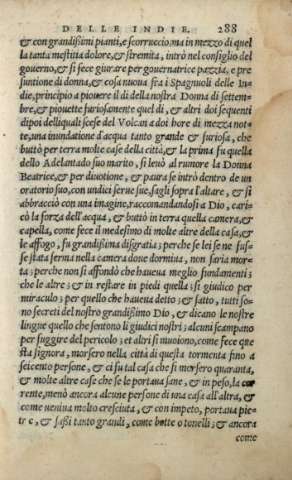 DELLE INDIE. 288
& con grandißimi pianti, e scorruccio, ma in mezzo di quel
la tanta mestitia dolore, & stremita, intrò nel consiglio del
gouerno, & si fece giurare per gouernatrice pazzia, e pre
suntione di donna, & cosa nuoua fra i Spagnuoli delle In
die, principio a piouere il di della nostra Donna di settem-
bre, & piouette furiosamente quel di, & altri doi sequenti
dipoi delliquali scese del Volcan a doi hore di mezza not
te, una inundatione d'acqua tanto grande & furiosa, che
buttò per terra molte case della città, & la prima fu quella
dello Adelantado suo marito, si leuò al rumore la Donna
Beatrice, & per diuotione, & paura se intrò dentro de un
oratorio suo, con undici serue sue, sagli sopra l'altare, & si
abbracciò con una imagine, raccomandandosi a Dio, cari-
cò la forza dell'acqua, & buttò in terra quella camera, &
capella, come fece il medesimo di molte altre della casa, &
le affogo, fu grandißima disgratia; perche se lei se ne fus-
se stata ferma nella camera doue dormiua, non saria mor-
ta; perche non si affondò che haueua meglio fundamenti;
che le altre; & in restare in piedi quella; si giudico per
miraculo; per quello che haueua detto; & fatto, tutti so-
no secreti del nostro grandißimo Dio, & dicano le nostre
lingue quello che sentono li giudici nostri; alcuni scampano
per fuggire del pericolo; et altri si muoiono, come fece que
sta signora, morsero nella città di questa tormenta fino a
seicento persone, & ci fu tal casa che si morsero quaranta,
& molte altre case che se le portaua sane, & in peso, la cor
rente, menò ancora alcune persone di una casa all'altra, &
come ueniua molto cresciuta, & con impeto, portaua pie-
tre, & saßi tanto grandi, come botte o tonelli; & ancora
come